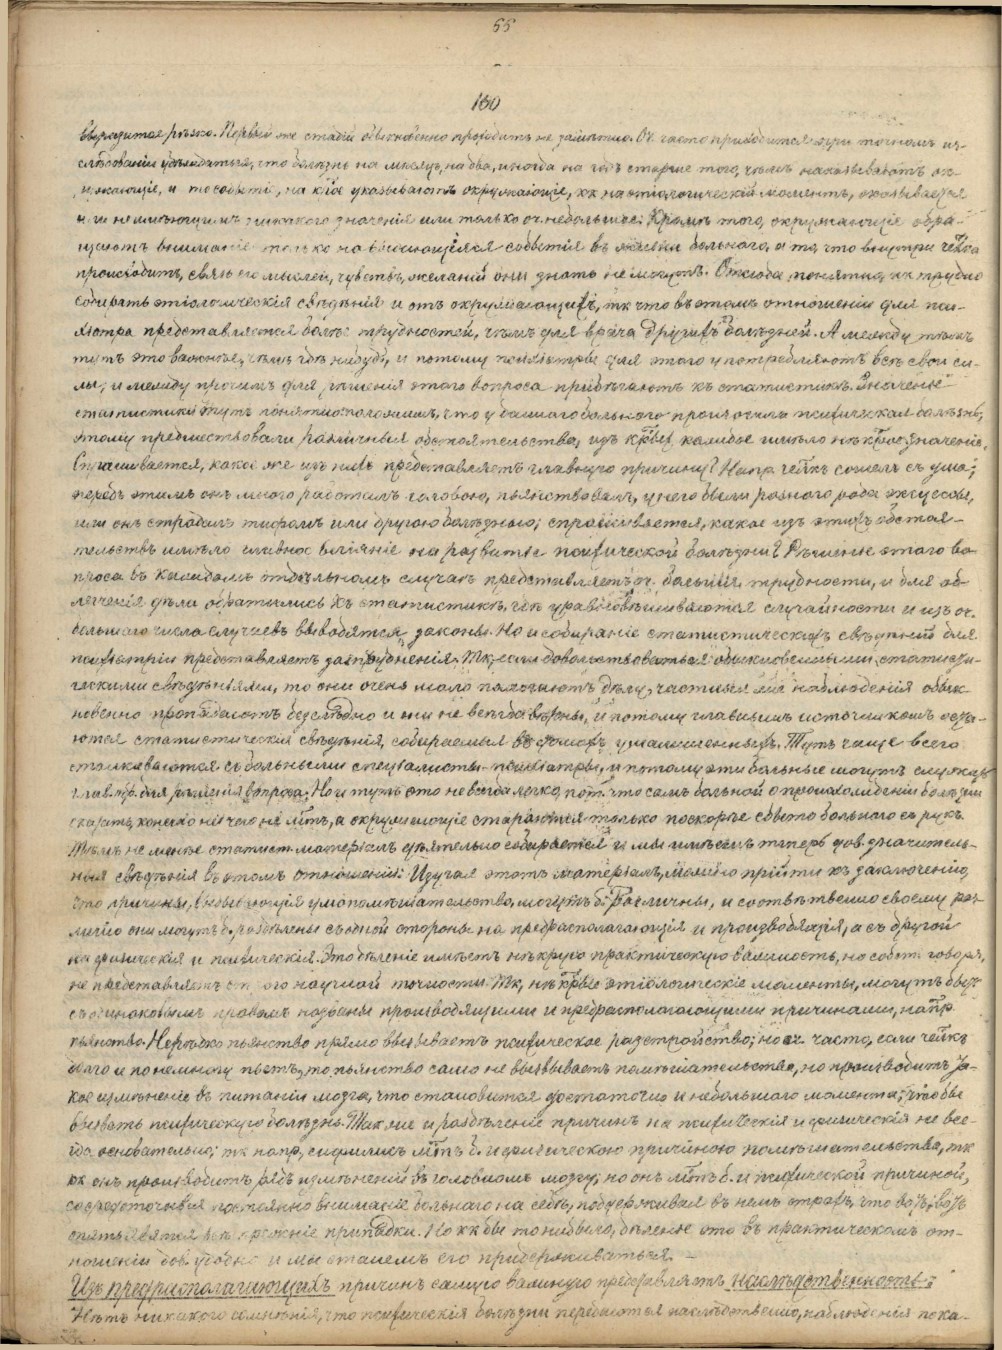 55
130
выразится резко. Первый же стадій обыкновенно проходитъ не замѣтно. Оч. часто приходится при точномъ из-
слѣдованіи убѣдиться, что болѣзнь на мѣсяцъ, на два, иногда на годъ старше того, чѣмъ показываютъ ок-
ружающіе, и то событіе, на кᲂе указываютъ окружающіе, кк на этіологическій моментъ, оказывается
или неимѣющимъ никакого значенія или только оч. небольшое. Кромѣ того, окружающіе обра-
щаютъ вниманіе только на выдающіяся событія въ жизни больного, а то, что внутри челка
происходитъ, связь его мыслей, чувствъ, желаній они знать не могутъ. Отсюда понятно, кк трудно
собирать этіологическія свѣдѣнія и отъ окружающихъ, тк что въ этомъ отношеніи для пси-
хіатра представляется болѣе трудностей, чѣмъ для врача другихъ болѣзней. А между тѣмъ
тутъ это важнѣе, чѣмъ гдѣ нибудь, и потому психіатры для этого употребляютъ всѣ свои си-
лы, и между прочимъ для рѣшенія этого вопроса прибѣгаютъ къ статистикѣ. Значеніе
статистики тутъ понятно: положимъ, что у башаго больного произошла психическая болѣзнь,
этому предшествовали различныя обстоятельства, изъ кᲂрыхъ каждое имѣло нѣкᲂрое значеніе.
Спрашивается, какое же изъ нихъ представляетъ главную причину? Напр. челкъ сошелъ съ ума;
передъ этимъ онъ много работалъ головою, пьянствовалъ, у него были разного рода эксцессы,
или онъ страдалъ тифомъ или другою болѣзнью; спрашивается, какое изъ этихъ обстоя-
тельствъ имѣло главное вліяніе на развитіе психической болѣзни? Рѣшеніе этого во
проса въ каждомъ отдѣльномъ случаѣ представляетъ оч. большія трудности, и для об-
легченія дѣла обратились къ статистикѣ, гдѣ уравновѣшиваются случайности и изъ оч.
большаго числа случаевъ выводятся законы. Но и собираніе статистическихъ свѣдѣній для
психіатріи представляетъ затрудненія. Тк, если довольствоваться обыкновенными статисти-
ческими свѣдѣніями, то они очень мало помогаютъ дѣлу, частныя наблюденія обык-
новенно пропадаютъ безслѣдно и они не всегда вѣрны, и потому главнымъ источникомъ оста-
ются статистическія свѣдѣнія, собираемыя въ домахъ умалишенныхъ. Тутъ чаще всего
сталкиваются съ больными специалисты-психіатры, и потому эти больные могутъ служить
главн. обр. для рѣшенія вопроса. Но и тутъ это не всегда легко, пот. что самъ больной о происхожденіи болѣзни
сказать конечно ничего не мᲂтъ, а окружающіе стараются только поскорѣе сбыть больного съ рукъ.
Тѣмъ не менѣе статист. матеріалъ дѣятельно собирается и мы имѣемъ теперь дов. значитель-
ныя свѣдѣнія въ этомъ отношеніи. Изучая этотъ матеріалъ, можно прійти къ заключенію,
что причины, вызывающія умопомѣшательство, могутъ б. различны, и соотвѣтственно своему раз-
личію они могутъ б. раздѣлены съ одной стороны на предрасполагающія и производящія, а съ другой
на физическія и психическія. Это дѣленіе имѣетъ нѣкᲂрую практическую важность, но собст. говоря,
не представляетъ строгой научной точности. Тк, нѣкᲂрые этіологическіе моменты, могутъ быть
съ одинаковымъ правомъ названы производящими и предрасполагающими причинами, напр.
пьянство. Нерѣдко пьянство прямо вызываетъ психическое разстройство; но оч. часто, если челкъ
долго и понемногу пьетъ, то пьянство само не вызываетъ помѣшательства, но производитъ та-
кое измѣненіе въ питаніи мозга, что становится достаточно и небольшого момента, чтобы
вызвать психическую болѣзнь. Также и раздѣленіе причинъ на психическія и физическія не все-
гда основательно; тк напр., сифилисъ мᲂтъ б. и физическою причиною помѣшательства, тк
кк онъ производитъ рядъ измѣненій въ головномъ мозгу; но онъ мᲂтъ б. и психической причиной,
сосредоточивая постоянно вниманіе больного на себѣ, поддерживая въ немъ страхъ, что вотъ, вотъ
опять явятся прежніе припадки. Но кк бы то ни было, дѣленіе это въ практическомъ от-
ношеніи дов. удобно и мы станемъ его придерживаться. –
Изъ предрасполагающихъ причинъ самую важную представляетъ наслѣдственность.
Нѣтъ никакого сомнѣнія, что психическія болѣзни передаются наслѣдственно, наблюденія пока-